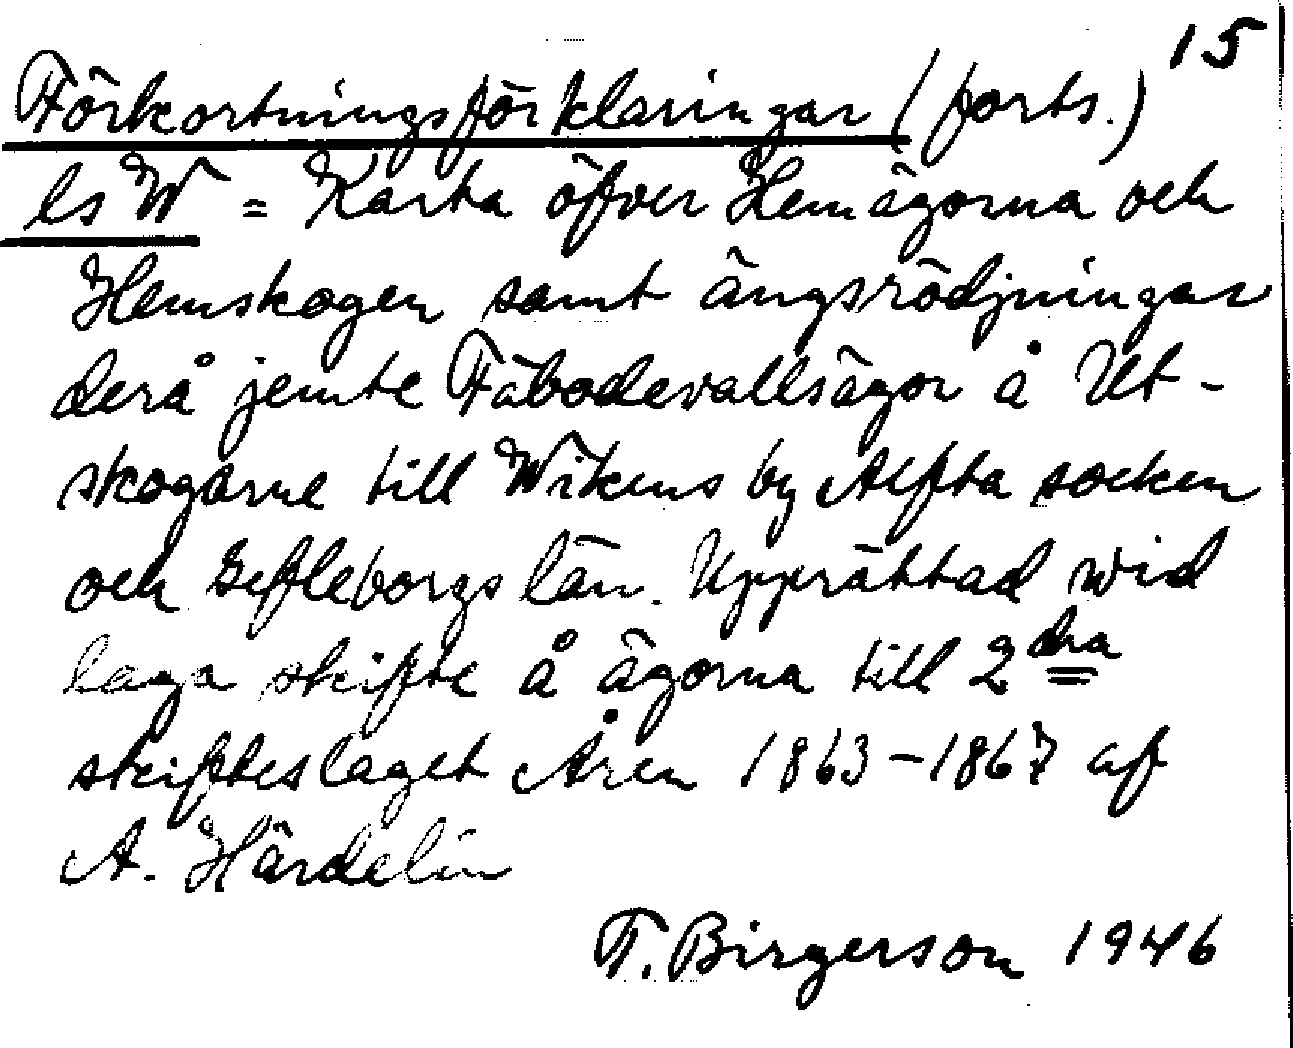 15
Förkortningsförklaringar (forts.)
ls W = Karta öfver Hemägorna och
Hemskogen samt ängsrödjningar
derå jemte Fäbodevallsägor å Ut-
skogarne till Wikens by Alfta socken
och Gefleborgs län. Upprättad wid
laga skifte å ägorna till 2dra
skifteslaget Åren 1863-1867 af
A. Härdelin
F. Birgerson 1946